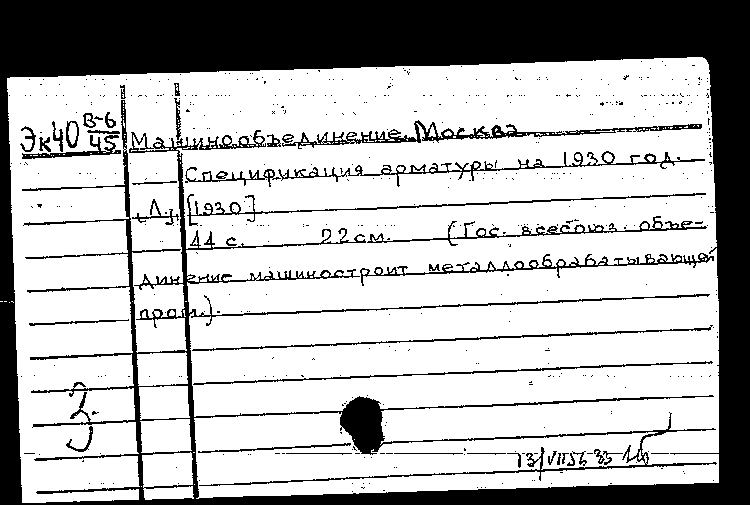 Эк40 В-6/45 Машинообъединение. Москва
Спецификация арматуры на 1930 год.
[Л.], [1930]
44 с. 22 см. (Гос. всесоюз. объе-
динение машиностроит металлообрабатывающей
пром.).
З